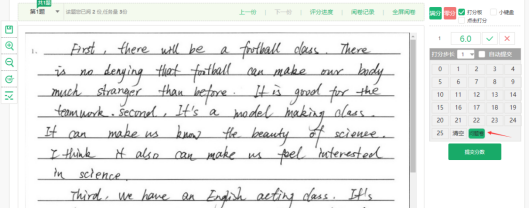 共1题
第1题
上一份 | 下一份 | 评分进度 | 阅卷记录 | 全屏阅卷
满分 零分 打分板 小键盘
点击打分
1 6.0
打分步长 1 自动提交
0 1 2 3 4
5 6 7 8 9
10 11 12 13 14
15 16 17 18 19
20 21 22 23 24
25 清空
提交分数
1. First, there will be a football class. There
is no denying that football can make our body
much stranger than before. It is good for the
teamwork. second, It's a model making class.
It can make us know the beauty of science.
I think it also can make us feel interested
in science.
Third, we have an English acting class. It's